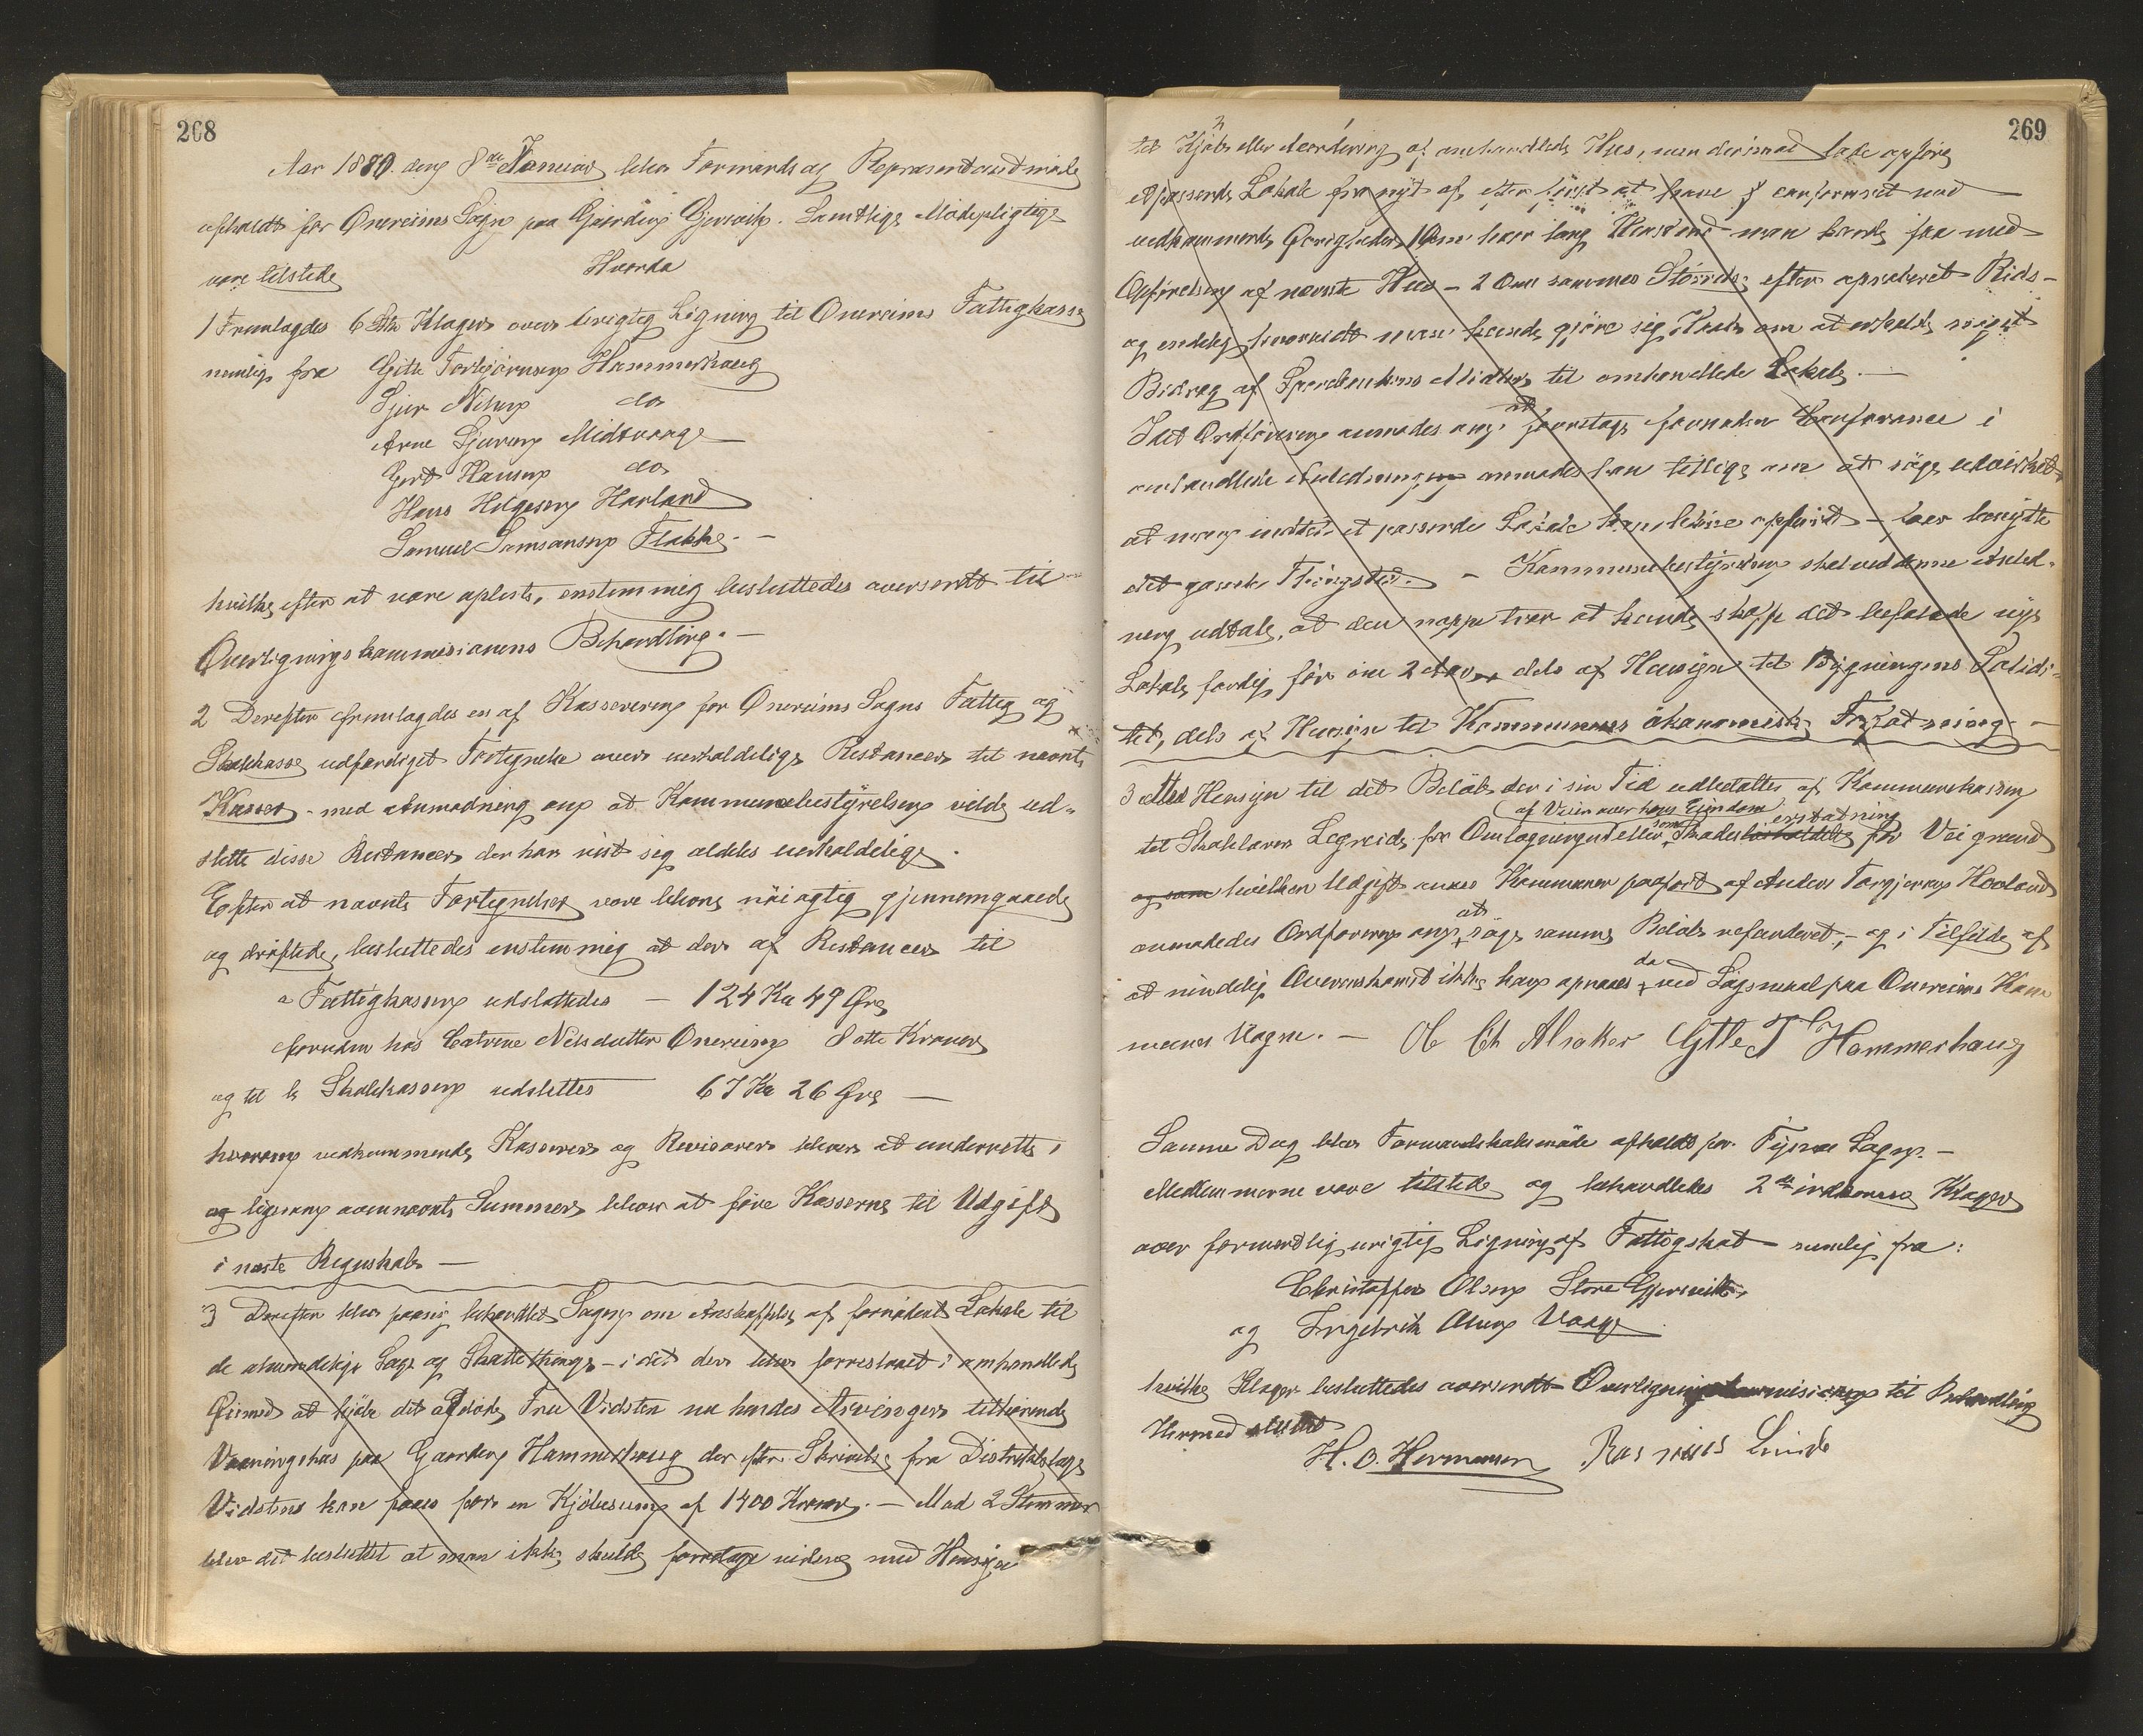 268
Aar 1880 den 8de Januar blev Formands og Repræsentantmöde
afholdt for Onereims Sogn paa Gaarden Gjersvik. Samtlige Mödepligtige
vare tilstede
Hvorda
1 Fremlagdes 6 Stk Klager over urigtig Ligning til Onereims Fattigkasse
nemlig fra Gitle Torbjörnsen Hammerhaug
Sjur Nilsen do
Arne Sjursen Midtvaage
Gert Hansen do
Hans Helgesen Havland
Samuel Samsonsen Flakke. —
hvilke, efter at være oplæste, enstemmig besluttedes oversendt til
Overligningskommissionens Behandling. —
2 Derefter fremlagdes en af Kassereren for Onereims Sogns Fattig og
Skolekasse udfærdiget Fortegnelse over uerholdelige Restancer til nævnte
Kasser - med Anmodning om at Kommunebestyrelsen vilde ud-
slette disse Restancer der har vist sig aldeles uerholdelige.
Efter at nævnte Fortegnelser vare blevne nöiagtig gjennemgaaede
og dröftede, besluttedes enstemmig at der af Restancer til
a Fattigkassen udslettedes — 124 Kr 49 Öre
foruden hos Catrine Nilsdatter Onereim 8 otte Kroner
og til b Skolekassen udslettes 67 Kr 26 Öre —
hvorom vedkommende Kasserer og Revisorer bliver at underrette,
og ligesom ovennævnte Summer bliver at före Kasserne til Udgift
i næste Regnskab —
3 Derefter blev paany behandlet Sagen om Anskaffelse af fornödent Lokale til
de almindelige Sage og Skattethinge - i det der blev forreslaaet i omhandlede
Öiemed at kjöbe det afdöde Fru Vidsten nu hendes Arvinger tilhörende
Vaaningshus paa Gaarden Hammerhaug der efter Skrivelse fra Distriktslæge
Vidstens kan faaes for en Kjöbesum af 1400 Kroner. — Mod 2 Stemmer
blev det besluttet at man ikke skulde foretage videre med Hensyn
269
til Kjöb eller Vurdering af omhandlede Hus, men derimod lade opföre
et passende Lokale fra nyt af, efter först at have conforeret med
vedkommende Övrighed, 1 Om hvor lang Henstand man kunde faa med
Opförelsen af nævnte Hus - 2 Om sammes Störrelse efter approberet Rids -
og endelig hvorvidt man kunde gjöre sig Haab om at erholde noget
Bidrag af Sparebankens Midler til omhandlede Lokale. —
Idet Ordföreren anmodes om at foretage fornöden Conferance i
omhandlede Anledning anmodes han tillige om at söge udvirket
at man indtil et passende Lokale kan blive opfört - faar benytte
det gamle Thingsted. - Kommunebestyrelsen skal ved denne Anled-
ning udtale, at den neppe tror at kunde skaffe det befalede nye
Lokale færdig för om 2 Aar, dels af Hensyn til Bygningens Solidi-
tet, dels af Hensyn til Kommunens ökonomiske Forfatning. —
3 Med Hensyn til det Belöb der i sin Tid udbetaltes af Kommunekassen
af Veien over hans Eiendom
til Skolelærer Legreid for Omlægningen eller som Skadeserstatning for Vei grund
og som hvilken Udgift ansees Kommunen paafört af Anders Torgjersen Hovland
anmodedes Ordföreren om at söge samme Belöb refunderet, - og i Tilfælde af
at mindelig Overenskomst ikke kan opnaaes da ved Sögsmaal paa Onereims Kom
munes Vegne. — O Ch Alsaker Gitle T Hammerhaug
Samme Dag blev Formandskabsmöde afholdt for Tysnæs Sogn. —
Medlemmerne vare tilstede og behandledes 2de indkomne Klager
over formentlig urigtig Ligning af Fattigskat nemlig fra:
Christoffer Olsen Store Gjersvik
og Ingebrik Olsen Vaage
hvilke Klager besluttedes oversendt Overligningskommissionen til Behandling
Hermed sluttet
H. O. Hermansen Rasmus Lunde